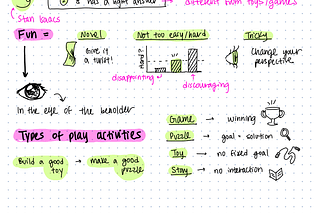 & has a right answer
different from toys/games
Stan Isaacs
Fun =
Novel
Not too easy/hard
Tricky
Give it
a twist!
Hard?
Change your
perspective
disappointing
discouraging
In the eye of the beholder
Types of play activities
Build a good
toy
make a good
puzzle
Game → winning
Puzzle → goal = solution
Toy → no fixed goal
Story → no interaction